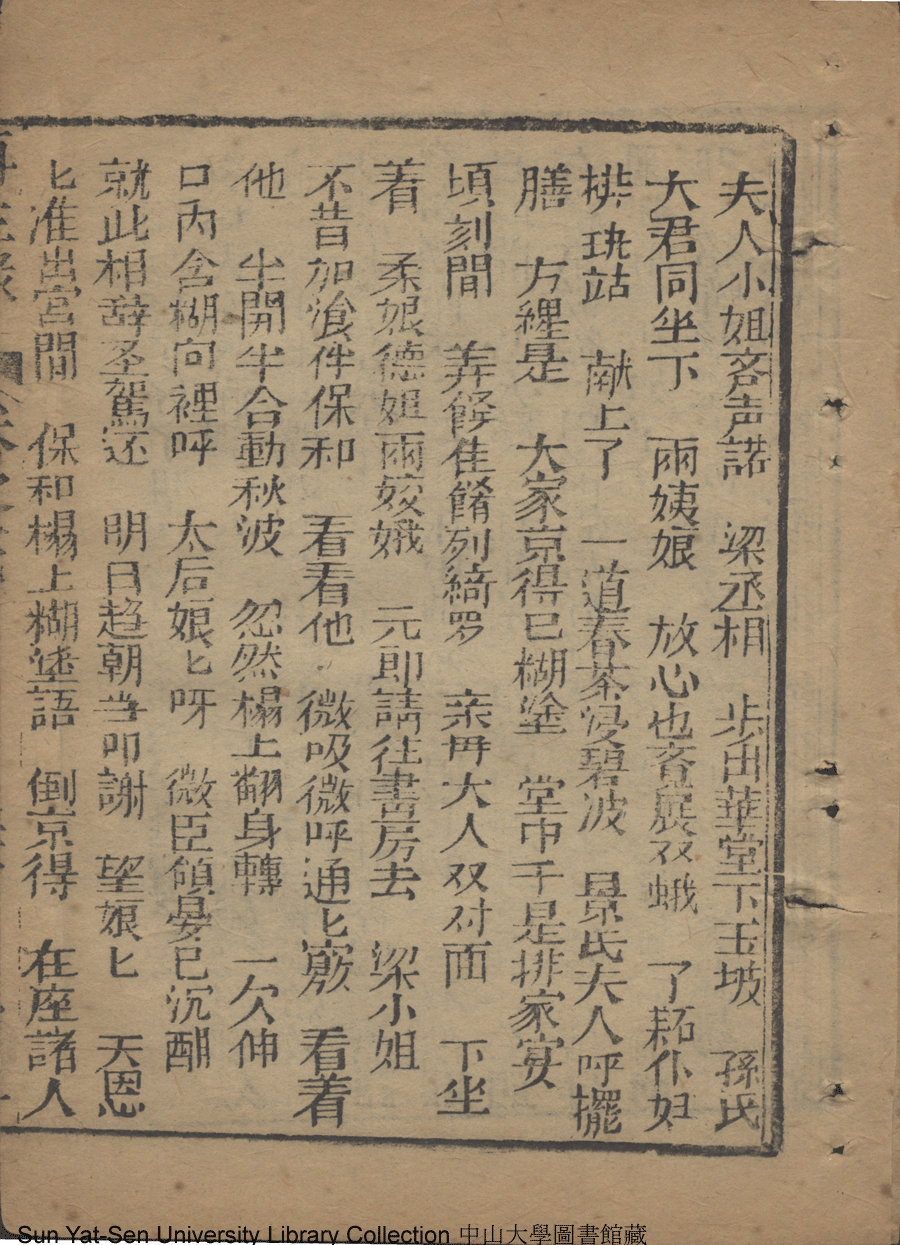 夫人小姐吝声諾　梁丞相　步出華堂下玉坡　孫氏
大君同坐下　兩姨娘　放心也斉展双蛾　了耘仆妇
排珗站　献上了　一道春茶浸碧波　景氏夫人呼擺
膳　方纔是　大家京得已糊塗　堂中千是排家宴
頃刻間　弄餚佳餚列綺罗　亲毌大人双对面　下坐
着　柔娘德姐兩姣娥　元即請往書房去　梁小姐
不昔加飡伴保和　看看他　微吸微呼通匕竅　看着
他　半開半合動秋波　忽然榻上翻身轉　一欠伸
口內含糊向裡呼　太后娘匕呀　微臣領晏已沉酣
就此相辞圣駕还　明日趋朝当叩謝　望娘匕　天恩
匕准出宮間　保和榻上糊塗語　倒京得　在座諸人
Sun Yat-Sen University Library Collection 中山大學圖書館藏